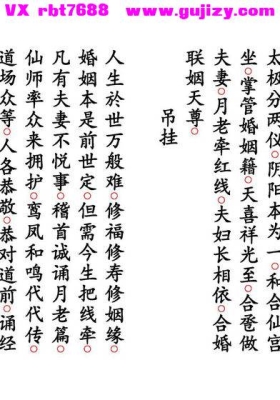 VX rbt7688 www.gujizy.com
太极分两仪。阴阳本为一。和合仙宫
坐。掌管婚姻籍。天喜祥光至。合卺做
夫妻。月老牵红线。夫妇长相依。合婚
联姻天尊。
吊挂
人生於世万般难。修福修寿修姻缘。
婚姻本是前世定。但需今生把线牵。
凡有夫妻不悦事。稽首诚诵月老篇。
仙师率众来拥护。鸾凤和鸣代代传。
道场众等。人各恭敬。恭对道前。诵经